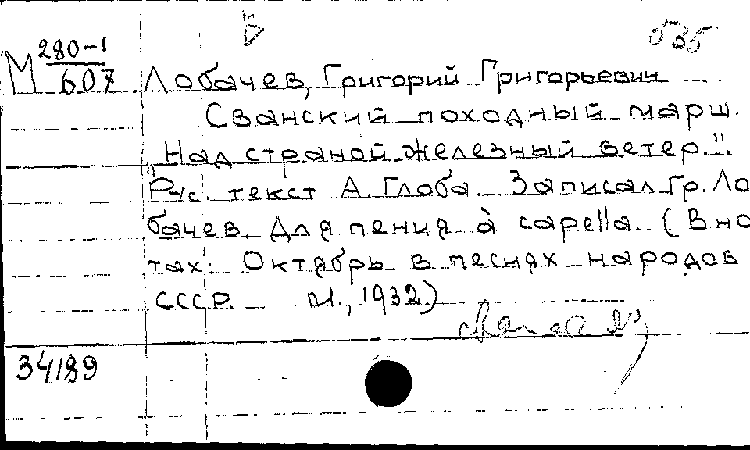 535
M 280-1
607
Лобачев, Григорий Григорьевич
Сванский походный марш.
"Над страной железный ветер."
Рус. текст А. Глоба. Записал Гр. Ло
бачев. Для пения à capella. (В но
тах: Октябрь в песнях народов
СССР. М., 1932.)
34189